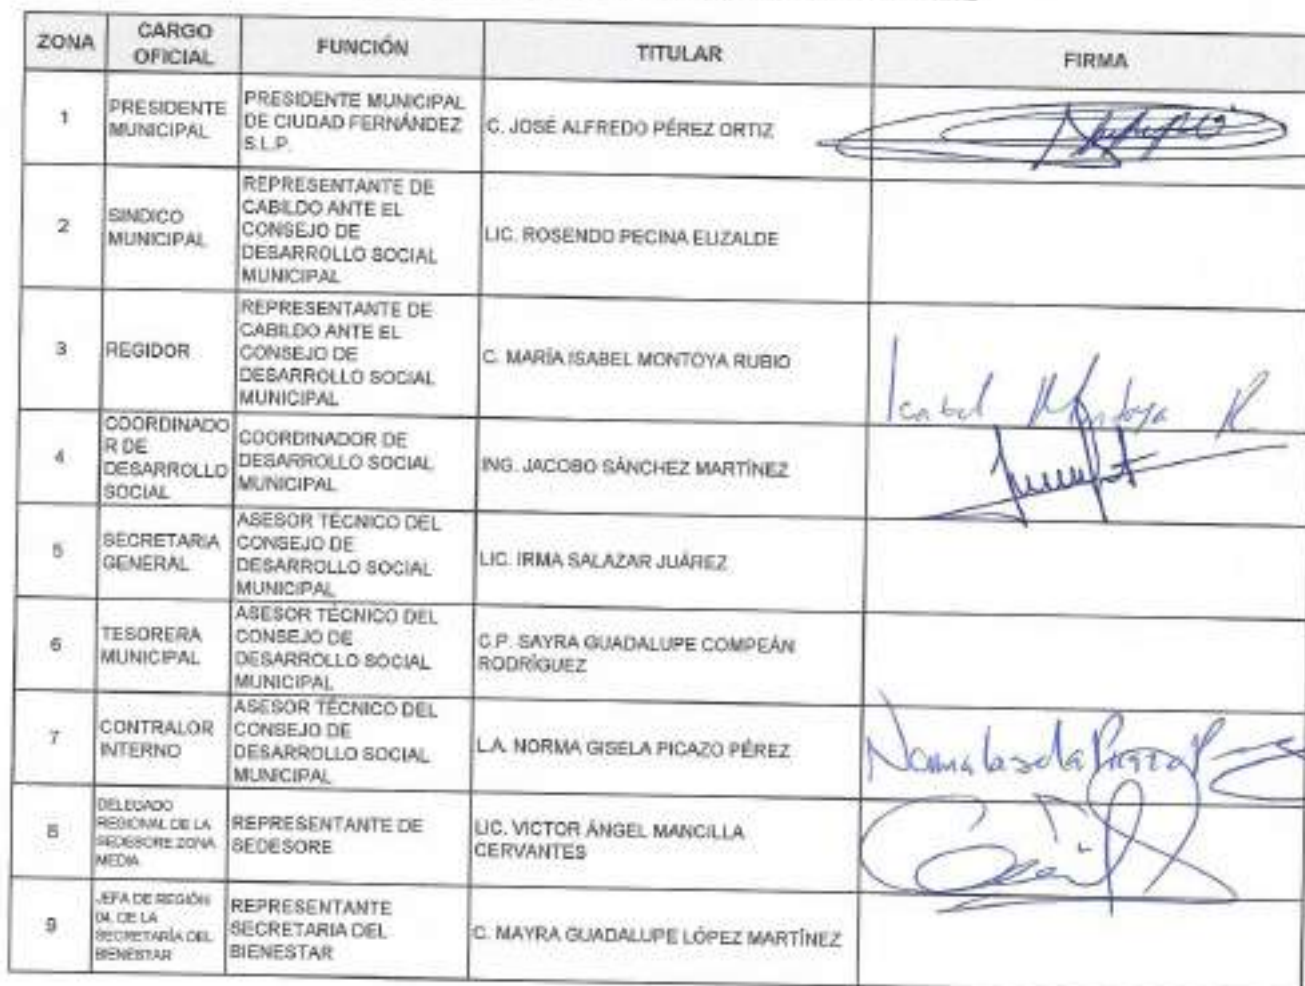 ZONA
CARGO
OFICIAL
FUNCIÓN
TITULAR
FIRMA
1
PRESIDENTE
MUNICIPAL
PRESIDENTE MUNICIPAL
DE CIUDAD FERNÁNDEZ
S.L.P.
C. JOSÉ ALFREDO PÉREZ ORTIZ
2
SINDICO
MUNICIPAL
REPRESENTANTE DE
CABILDO ANTE EL
CONSEJO DE
DESARROLLO SOCIAL
MUNICIPAL
LIC. ROSENDO PECINA ELIZALDE
3
REGIDOR
REPRESENTANTE DE
CABILDO ANTE EL
CONSEJO DE
DESARROLLO SOCIAL
MUNICIPAL
C. MARÍA ISABEL MONTOYA RUBIO
Isabel Montoya R.
4
COORDINADO
R DE
DESARROLLO
SOCIAL
COORDINADOR DE
DESARROLLO SOCIAL
MUNICIPAL
ING. JACOBO SÁNCHEZ MARTÍNEZ
5
SECRETARIA
GENERAL
ASESOR TÉCNICO DEL
CONSEJO DE
DESARROLLO SOCIAL
MUNICIPAL
LIC. IRMA SALAZAR JUÁREZ
6
TESORERA
MUNICIPAL
ASESOR TÉCNICO DEL
CONSEJO DE
DESARROLLO SOCIAL
MUNICIPAL
C.P. SAYRA GUADALUPE COMPEÁN
RODRÍGUEZ
7
CONTRALOR
INTERNO
ASESOR TÉCNICO DEL
CONSEJO DE
DESARROLLO SOCIAL
MUNICIPAL
L.A. NORMA GISELA PICAZO PÉREZ
8
DELEGADO
REGIONAL DE LA
SEDESORE ZONA
MEDIA
REPRESENTANTE DE
SEDESORE
LIC. VICTOR ÁNGEL MANCILLA
CERVANTES
9
JEFA DE REGIÓN
04, DE LA
SECRETARÍA DEL
BIENESTAR
REPRESENTANTE
SECRETARIA DEL
BIENESTAR
C. MAYRA GUADALUPE LÓPEZ MARTÍNEZ